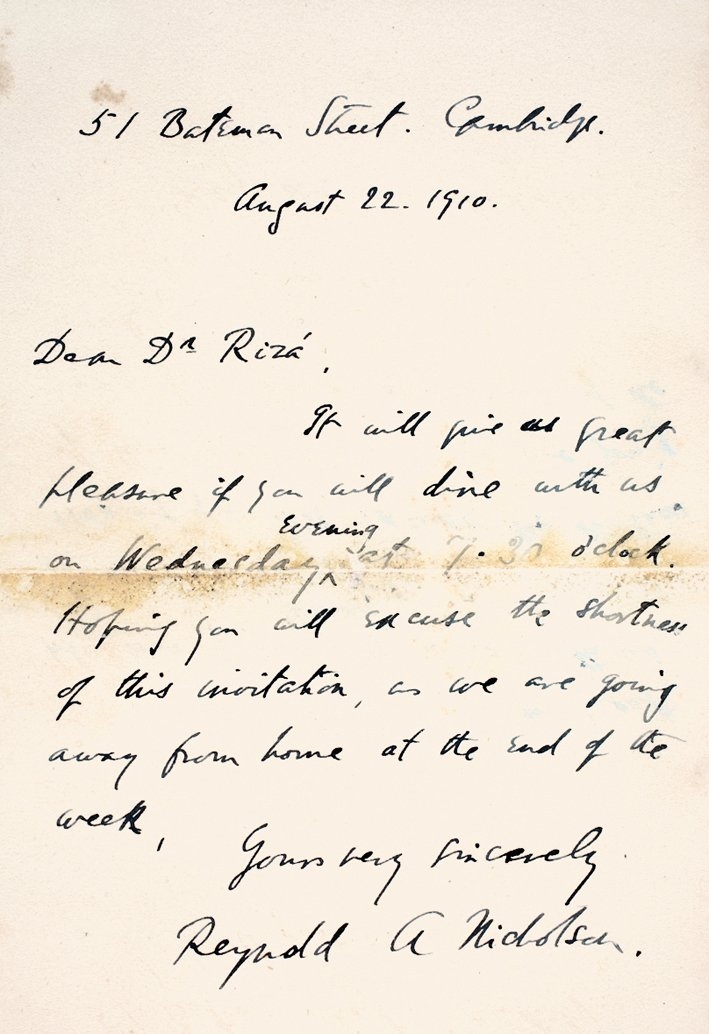 51 Bateman Street. Cambridge.
August 22. 1910.
Dear Dr Rizá,
It will give us great
pleasure if you will dine with us
evening
on Wednesday ^ at 7.30 o'clock.
Hoping you will excuse the shortness
of this invitation, as we are going
away from home at the end of the
week,
Yours very sincerely
Reynold A Nicholson.